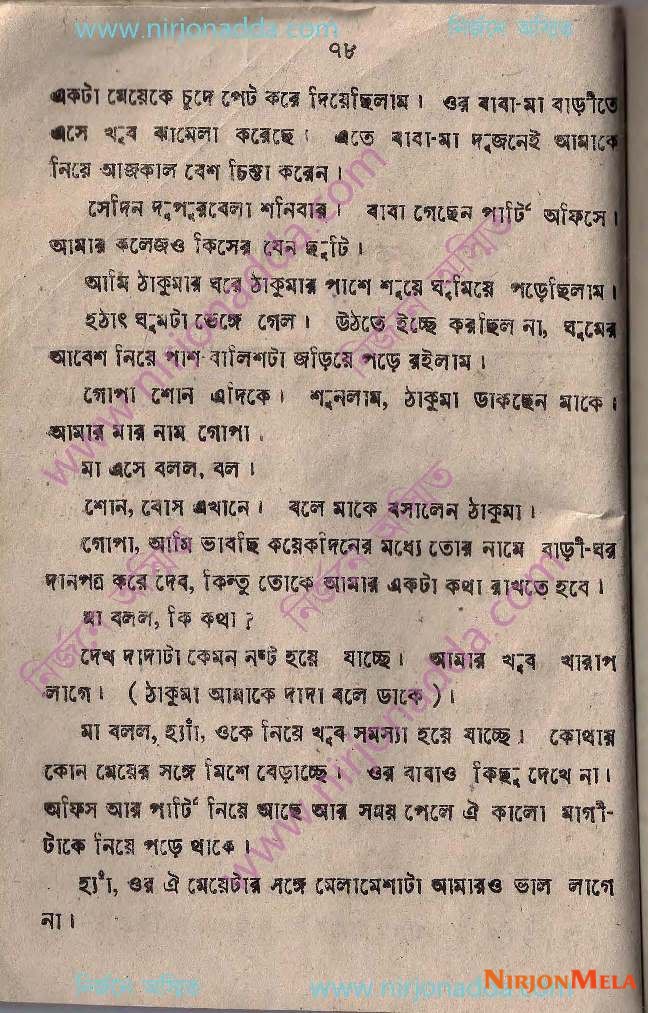 www.nirjonadda.com নির্জনে অম্মিত
৭৮
একটা মেয়েকে চুদে পেট করে দিয়েছিলাম। ওর বাবা-মা বাড়ীতে
এসে খুব ঝামেলা করেছে। এতে বাবা-মা দুজনেই আমাকে
নিয়ে আজকাল বেশ চিন্তা করেন।
সেদিন দুপুরবেলা শনিবার। বাবা গেছেন পার্টি অফিসে।
আমার কলেজও কিসের যেন ছুটি।
আমি ঠাকুমার ঘরে ঠাকুমার পাশে শুয়ে ঘুমিয়ে পড়েছিলাম।
হঠাৎ ঘুমটা ভেঙ্গে গেল। উঠতে ইচ্ছে করছিল না, ঘুমের
আবেশ নিয়ে পাশ বালিশটা জড়িয়ে পড়ে রইলাম।
গোপা শোন এদিকে। শুনলাম, ঠাকুমা ডাকছেন মাকে।
আমার মার নাম গোপা।
মা এসে বলল, বল।
শোন, বোস এখানে। বলে মাকে বসালেন ঠাকুমা।
গোপা, আমি ভাবছি কয়েকদিনের মধ্যে তোর নামে বাড়ী-ঘর
দানপত্র করে দেব, কিন্তু তোকে আমার একটা কথা রাখতে হবে।
মা বলল, কি কথা?
দেখ দাদাটা কেমন নষ্ট হয়ে যাচ্ছে। আমার খুব খারাপ
লাগে। (ঠাকুমা আমাকে দাদা বলে ডাকে)।
মা বলল, হ্যাঁ, ওকে নিয়ে খুব সমস্যা হয়ে যাচ্ছে। কোথায়
কোন মেয়ের সঙ্গে মিশে বেড়াচ্ছে। ওর বাবাও কিছু দেখে না।
অফিস আর পার্টি নিয়ে আছে আর সময় পেলে ঐ কালো মাগী-
টাকে নিয়ে পড়ে থাকে।
হ্যাঁ, ওর ঐ মেয়েটার সঙ্গে মেলামেশাটা আমারও ভাল লাগে
না।
www.nirjonadda.com
NIRJONMELA